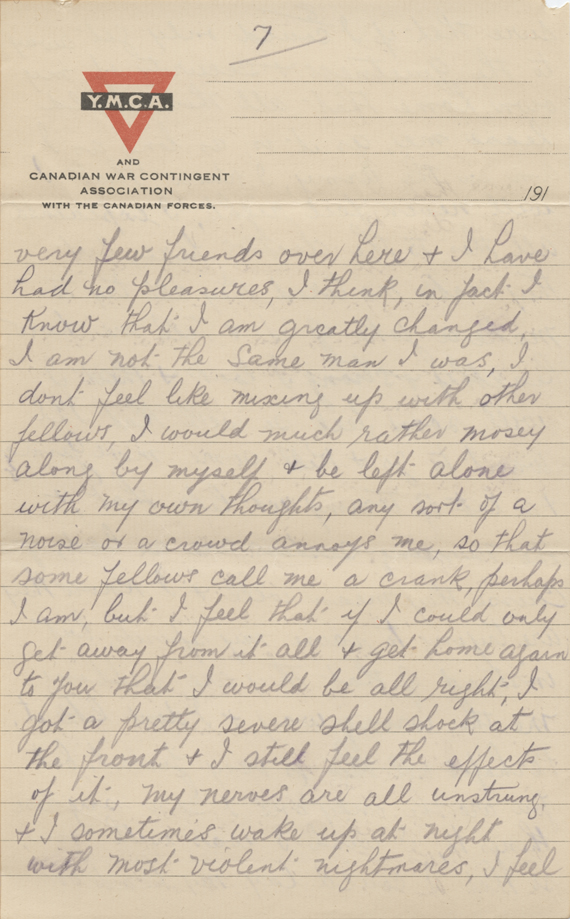 7
Y.M.C.A.
AND
CANADIAN WAR CONTINGENT
ASSOCIATION
WITH THE CANADIAN FORCES.
191
very few friends over here & I have
had no pleasures, I think, in fact I
know that I am greatly changed,
I am not the same man I was, I
dont feel like mixing up with other
fellows, I would much rather mosey
along by myself & be left alone
with my own thoughts, any sort of a
noise or a crowd annoys me, so that
some fellows call me a crank, perhaps
I am, but I feel that if I could only
get away from it all & get home again
to you that I would be all right, I
got a pretty severe shell shock at
the front & I still feel the effects
of it, my nerves are all unstrung,
& I sometimes wake up at night
with most violent nightmares, I feel